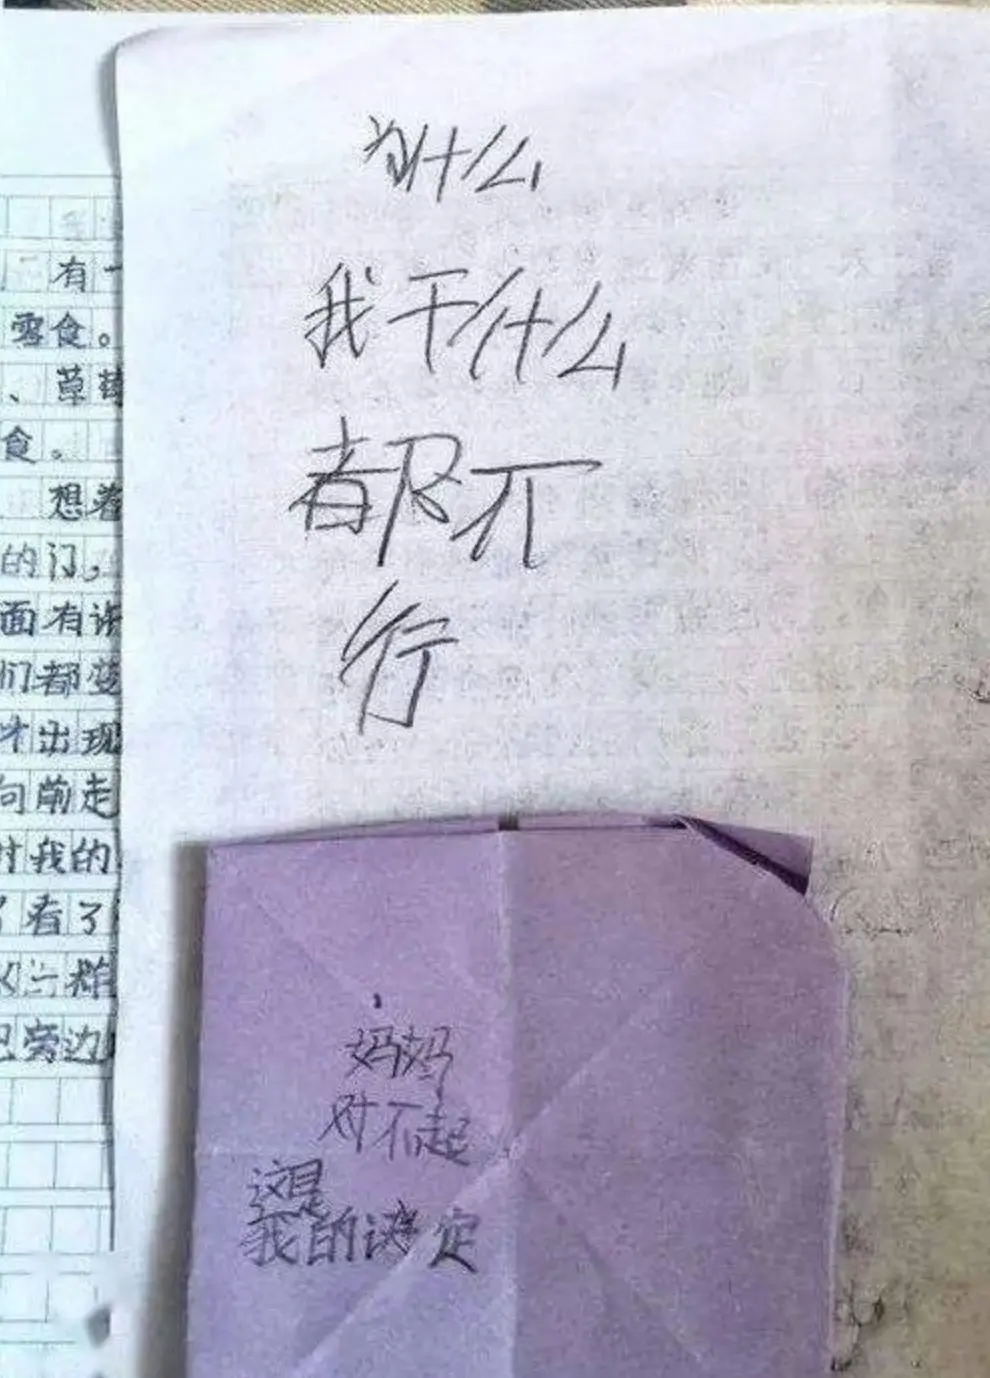 有一
零食。
、草莓
食。
想着
的门,
面有许
们都变
才出现
向前走
时我的
了看了
把旁边
为什么
我干什么
都不
行
妈妈
对不起
这是
我的决定